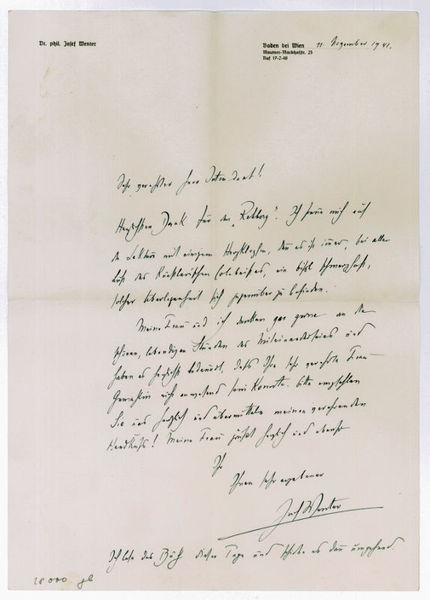 Dr. phil. Josef Wenter
Baden bei Wien 11. Dezember 1941.
Ruf 17-2-48
Sehr geehrter Herr Intendant!
Herzlichen Dank für den Ich freue mich auf
die Lektüre mit einigem Herzklopfen, denn es ist immer, bei aller
Lust des künstlerischen ein bißl schmerzhaft,
solcher Überlegenheit sich gegenüber zu befinden.
Meine Frau und ich denken gar gerne an die
schönen, lebendigen Stunden des Miteinanderseins und
haben es herzlichst bedauert, daß Ihre sehr geehrte Frau
Gemahlin nicht anwesend sein konnte. Bitte empfehlen
Sie uns herzlich und übermitteln meinen
Handkuß! Meine Frau grüßt herzlich und ebenso
Ihr
Ihnen sehr ergebener
Josef Wenter
Ich lese das Buch dieser Tage und schicke es dann umgehend.